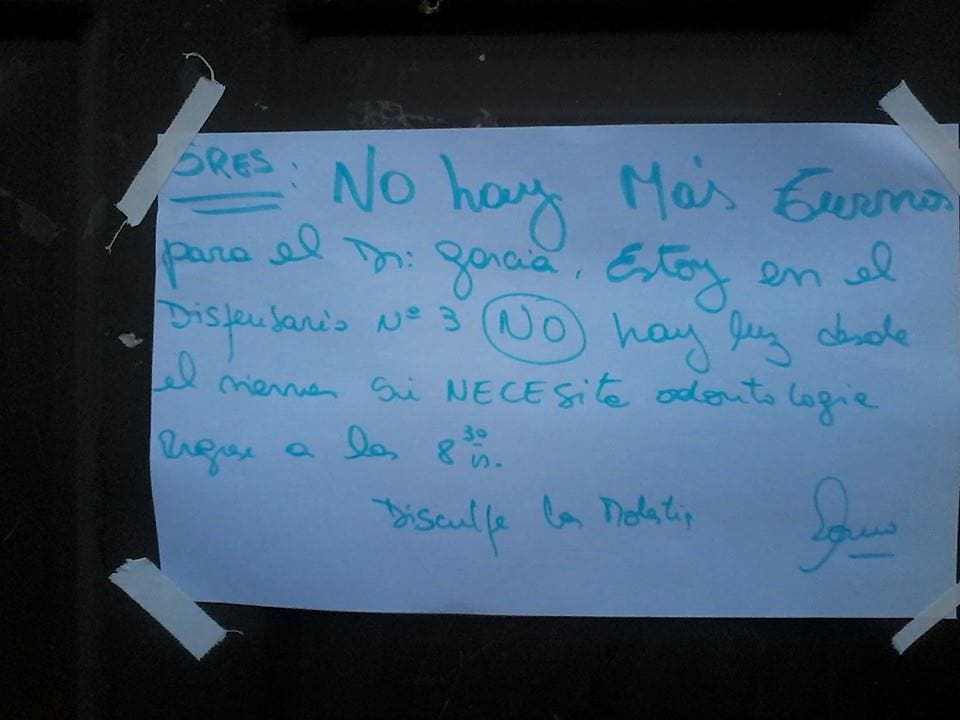 SRES: No hay Más turnos
para el Dr: Garcia, Estoy en el
Dispensario Nº 3 NO hay luz desde
el viernes si NECESita odontologia
regrese a las 8 30
Disculpe las Molestias